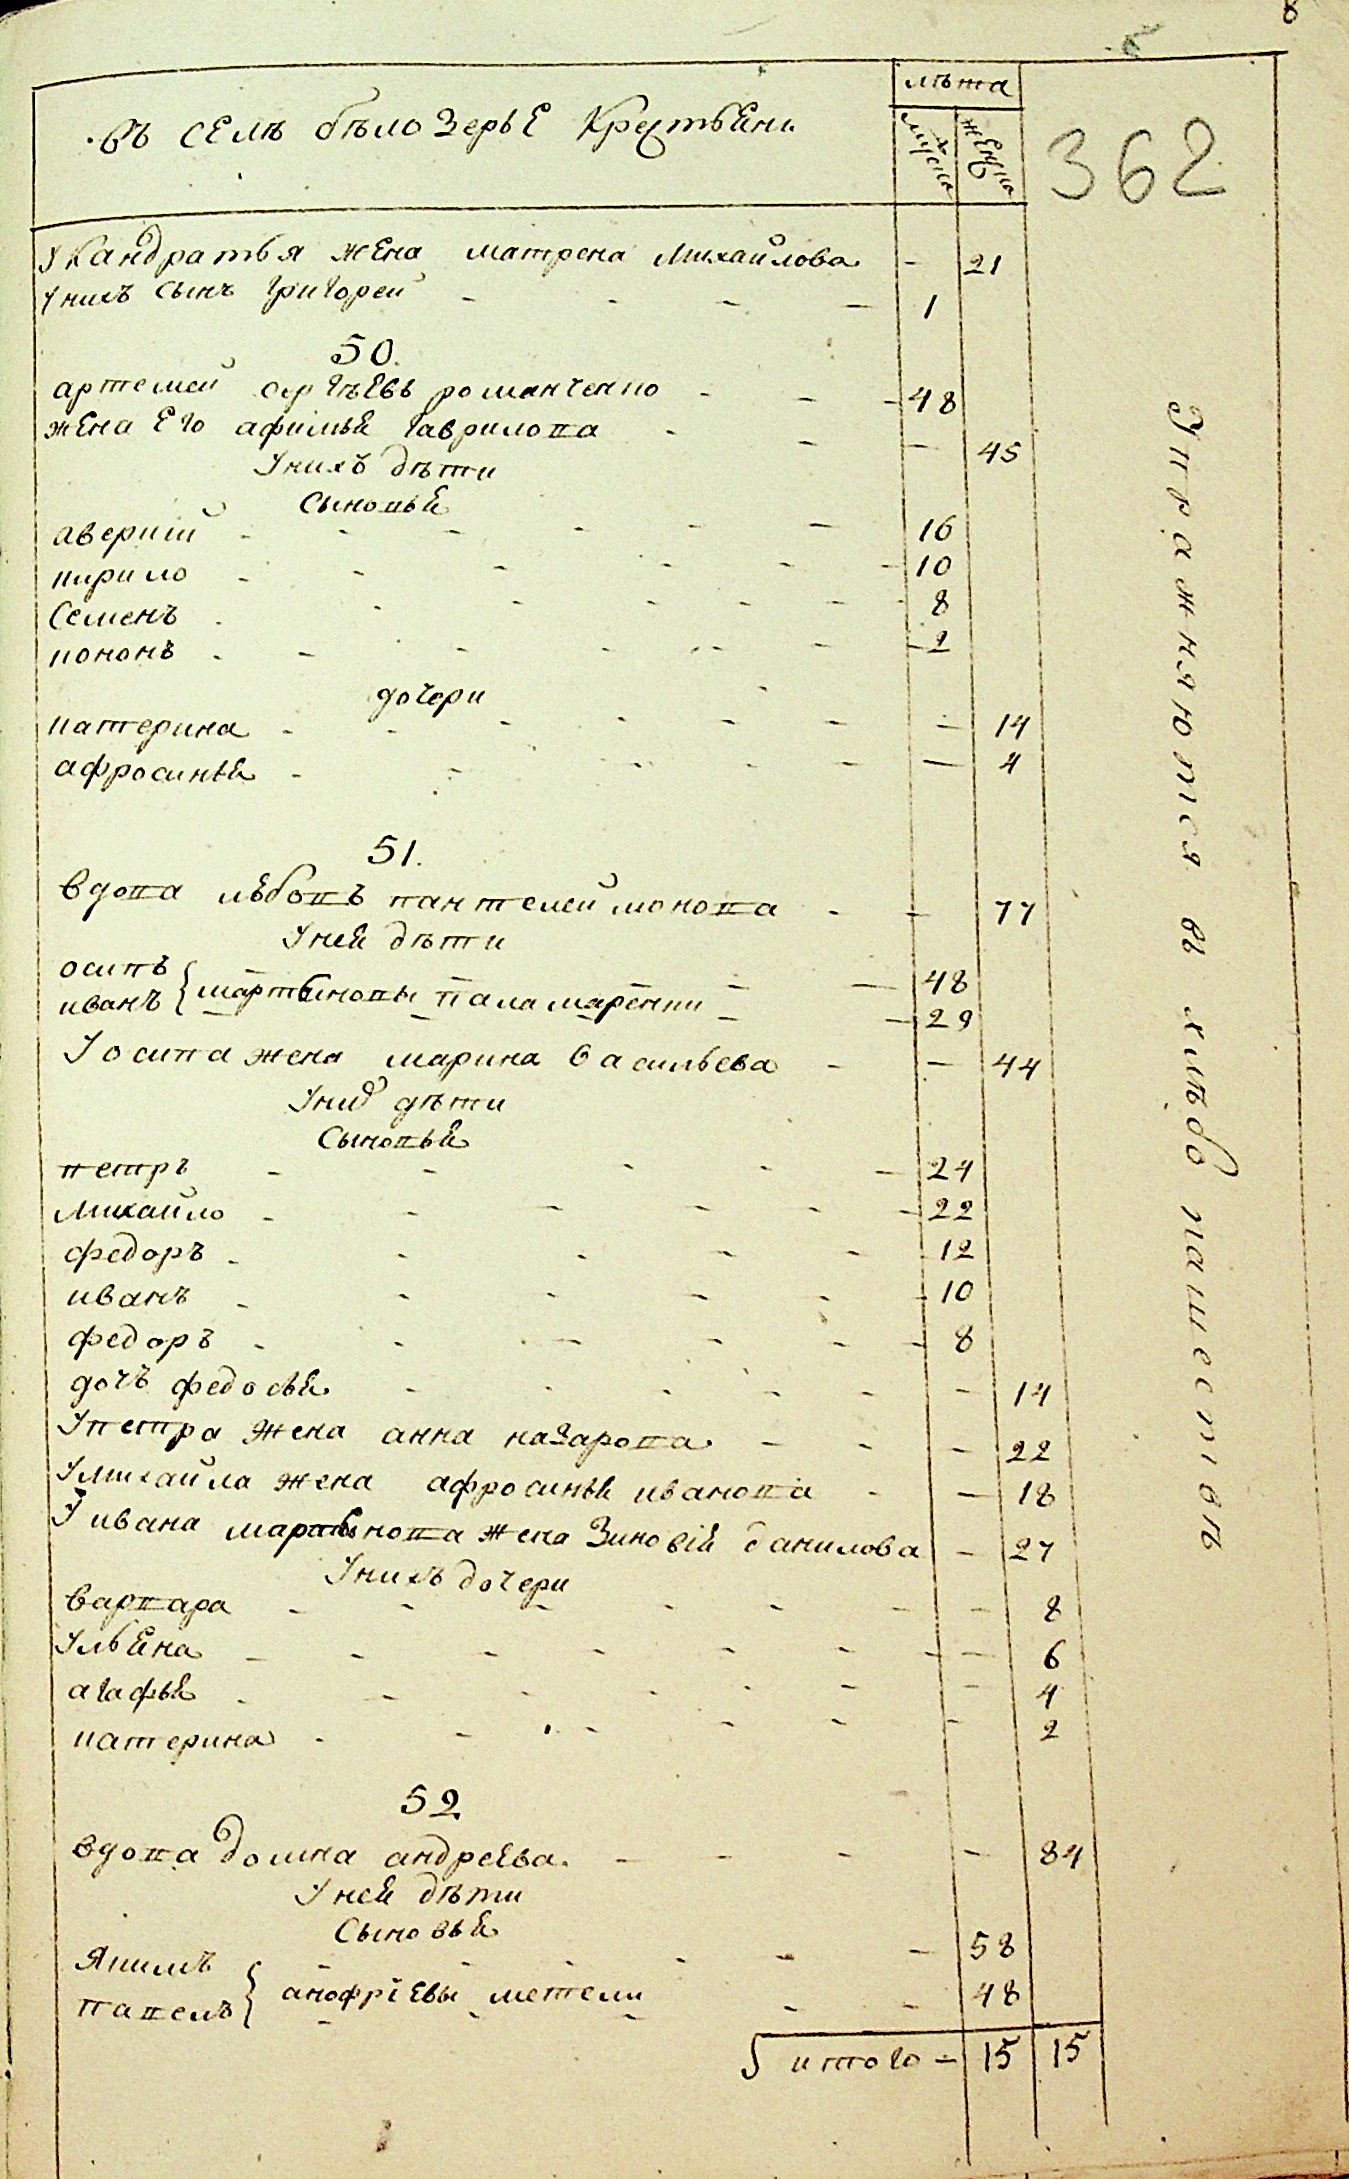 въ селѣ бѣлозерье Крестьянъ
лѣта
мужеска
женска
362
У Кандратья жена матрена михайлова - 21
У нихъ сынъ григорей - 1
50.
артемей сергѣевъ романченко - 48
жена его афимья гаврилова - 45
У нихъ дѣти
Сыновья
аверкий - 16
кирило - 10
Семенъ - 8
кононъ - 2
дочери
катерина - 14
афросинья - 4
51.
вдова любовь пантелеймонова - 77
У ней дѣти
осипъ - 48
иванъ } мартыновы паламаренки - 29
У осипа жена марина васильева - 44
У них дѣти
Сыновья
петръ - 24
михайло - 22
федоръ - 12
иванъ - 10
федоръ - 8
дочь федосья - 14
У петра жена анна назарова - 22
У михайла жена афросинья иванова - 18
У ивана мартынова жена Зиновiя данилова - 27
У нихъ дочери
варвара - 8
Ульяна - 6
агафья - 4
катерина - 2
52
вдова домна андреева - 84
У ней дѣти
Сыновья
Якимъ - 58
павелъ } анофрiевы метели - 48
итого - 15 15
Упражняются въ хлѣбопашествѣ